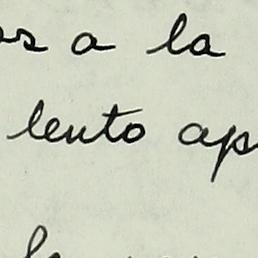 os a la
lento ap